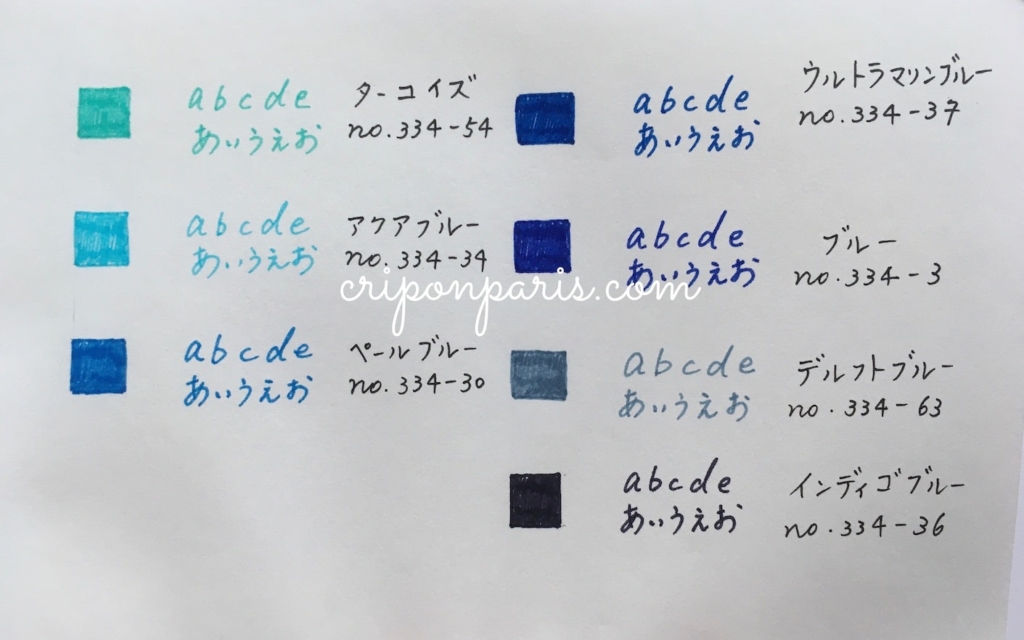 abcde
あいうえお
ターコイズ
no.334-54
abcde
あいうえお
アクアブルー
no.334-34
abcde
あいうえお
ペールブルー
no.334-30
abcde
あいうえお
ウルトラマリンブルー
no.334-37
abcde
あいうえお
ブルー
no.334-3
abcde
あいうえお
デルフトブルー
no.334-63
abcde
あいうえお
インディゴブルー
no.334-36
criponparis.com